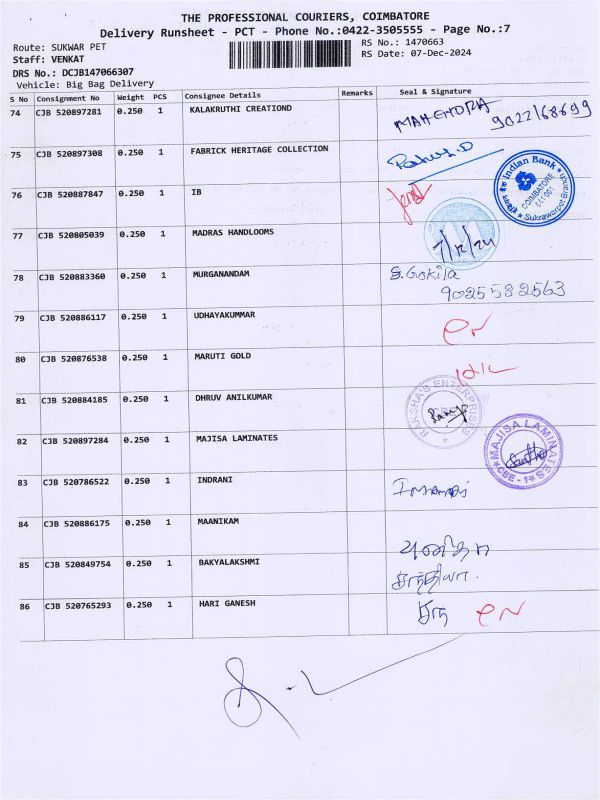 THE PROFESSIONAL COURIERS, COIMBATORE
Delivery Runsheet - PCT - Phone No.:0422-3505555 - Page No.:7
Route: SUKWAR PET
RS No.: 1470663
Staff: VENKAT
RS Date: 07-Dec-2024
DRS No.: DCJB147066307
Vehicle: Big Bag Delivery
S No Consignment No Weight PCS Consignee Details Remarks Seal & Signature
74 CJB 520897281 0.250 1 KALAKRUTHI CREATIOND MAHENDRA 9022168699
75 CJB 520897308 0.250 1 FABRICK HERITAGE COLLECTION
Indian Bank COIMBATORE 641001 Sukrawarpet Branch
76 CJB 520887847 0.250 1 IB
77 CJB 520805039 0.250 1 MADRAS HANDLOOMS 7/12/24
78 CJB 520883360 0.250 1 MURGANANDAM S. Gokila
9025582563
79 CJB 520886117 0.250 1 UDHAYAKUMMAR
80 CJB 520876538 0.250 1 MARUTI GOLD
81 CJB 520884185 0.250 1 DHRUV ANILKUMAR RAKSHA'S ENTERPRISES
82 CJB 520897284 0.250 1 MAJISA LAMINATES MAJISA LAMINATES CBE - 1
83 CJB 520786522 0.250 1 INDRANI
84 CJB 520886175 0.250 1 MAANIKAM
85 CJB 520849754 0.250 1 BAKYALAKSHMI
86 CJB 520765293 0.250 1 HARI GANESH